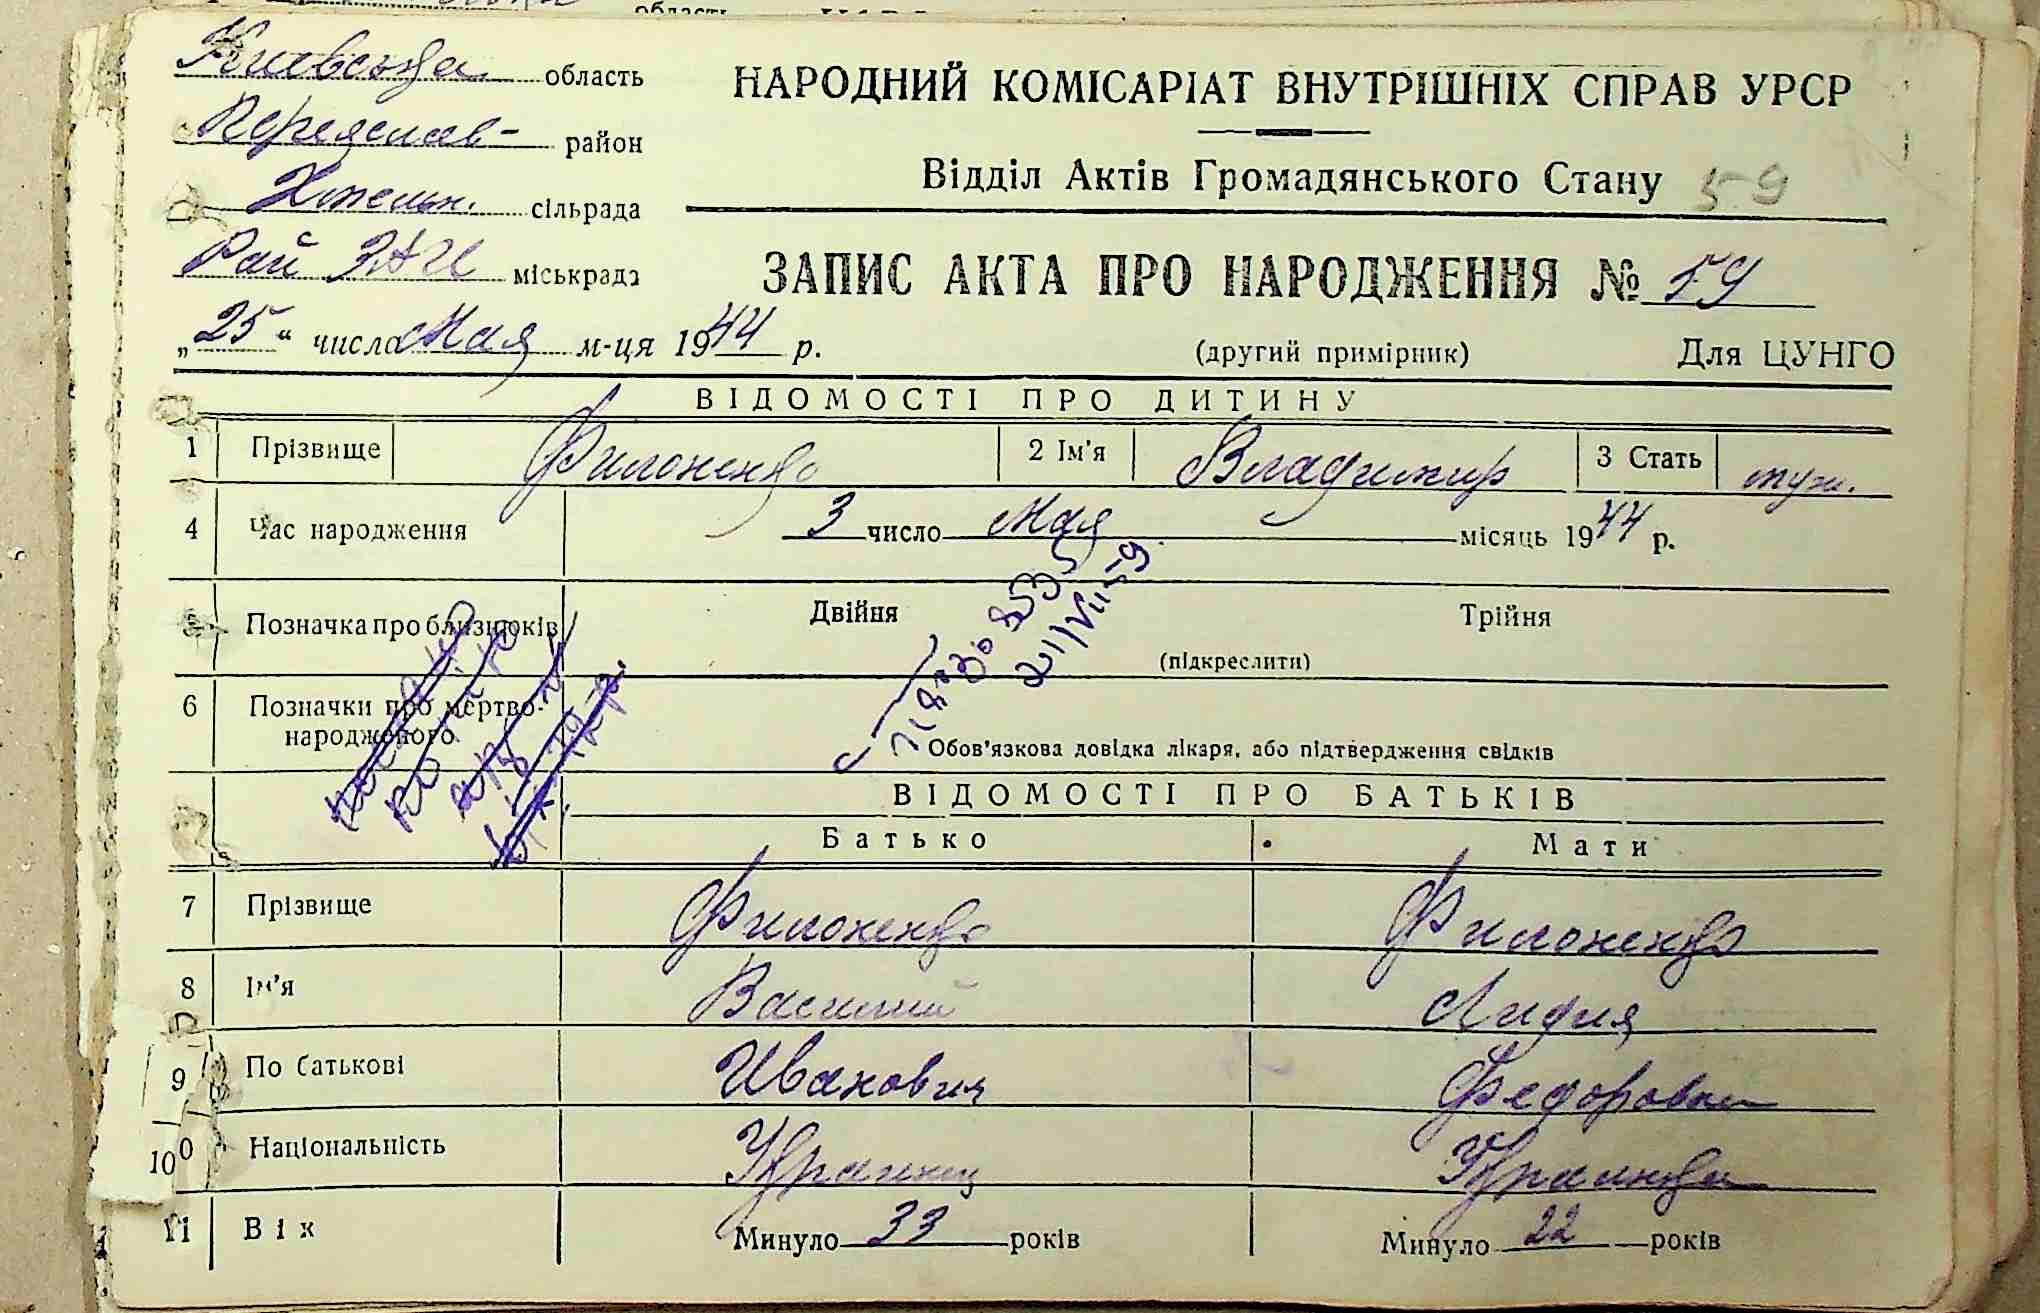 Киевская область
Переяслав- район
сільрада
Рай ЗАГС міськрада
НАРОДНИЙ КОМІСАРІАТ ВНУТРІШНІХ СПРАВ УРСР
Відділ Актів Громадянського Стану 59
ЗАПИС АКТА ПРО НАРОДЖЕННЯ № 59
„25“ числа Мая м-ця 1944 р. (другий примірник) Для ЦУНГО
ВІДОМОСТІ ПРО ДИТИНУ
1 Прізвище Филоненко 2 Ім'я Владимир 3 Стать муж.
4 Час народження 3 число Мая місяць 1944 р.
5 Позначка про близнюків Двійня Трійня
(підкреслити)
6 Позначки про мертво-
народженого Обов'язкова довідка лікаря, або підтвердження свідків
ВІДОМОСТІ ПРО БАТЬКІВ
Батько Мати
7 Прізвище Филоненко Филоненко
8 Ім'я Василий Лидия
9 По батькові Иванович Федоровна
10 Національність Украинец Украинка
11 Вік Минуло 33 років Минуло 22 років